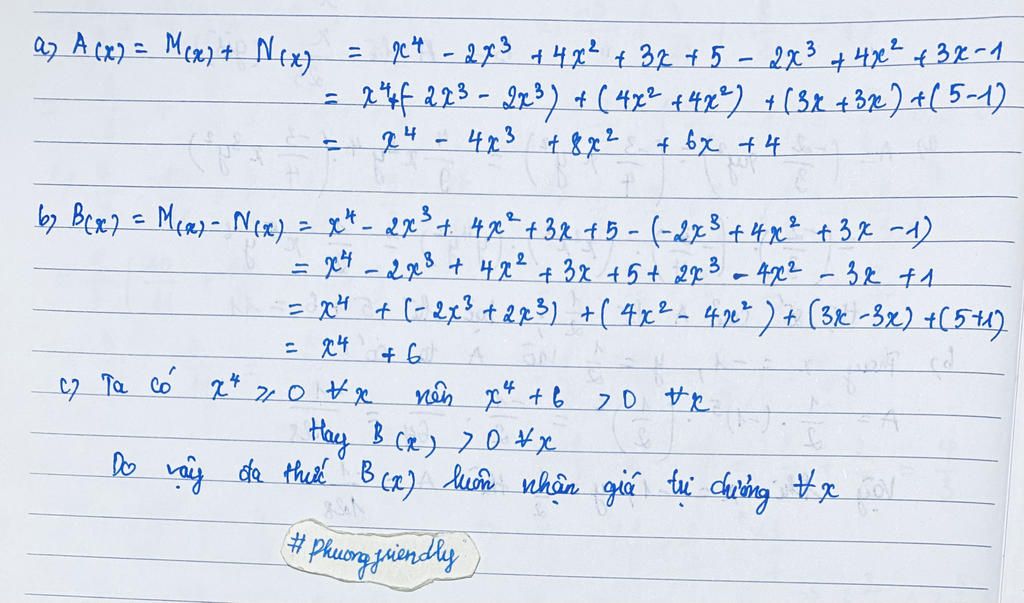 a) A(x) = M(x) + N(x) = x⁴ - 2x³ + 4x² + 3x + 5 - 2x³ + 4x² + 3x - 1
= x⁴ + (- 2x³ - 2x³) + (4x² + 4x²) + (3x + 3x) + (5 - 1)
= x⁴ - 4x³ + 8x² + 6x + 4
b) B(x) = M(x) - N(x) = x⁴ - 2x³ + 4x² + 3x + 5 - (-2x³ + 4x² + 3x - 1)
= x⁴ - 2x³ + 4x² + 3x + 5 + 2x³ - 4x² - 3x + 1
= x⁴ + (-2x³ + 2x³) + (4x² - 4x²) + (3x - 3x) + (5+1)
= x⁴ + 6
c) Ta có x⁴ ⩾ 0 ∀x nên x⁴ + 6 > 0 ∀x
Hay B(x) > 0 ∀x
Do vậy đa thức B(x) luôn nhận giá trị dương ∀x
#phuongfriendly